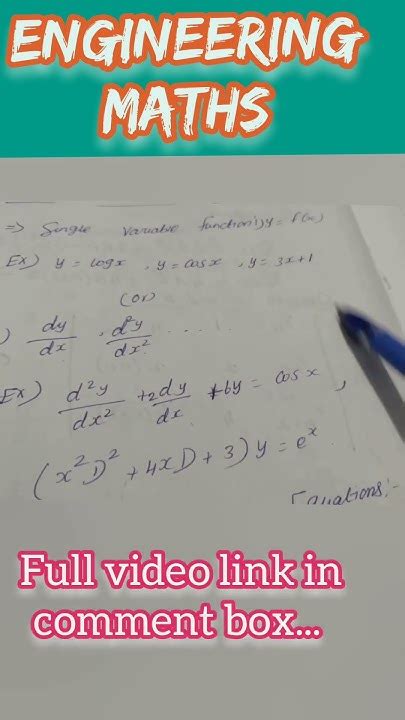 ENGINEERING
MATHS
⇒ Single variable function: y = f(x)
Ex) y = logx , y = cosx , y = 3x+1
(or)
) dy/dx , d²y/dx² . . . .
Ex) d²y/dx² + 2dy/dx + 6y = cosx ,
(x²D² + 4xD + 3)y = eˣ
Equations:-
Full video link in
comment box...